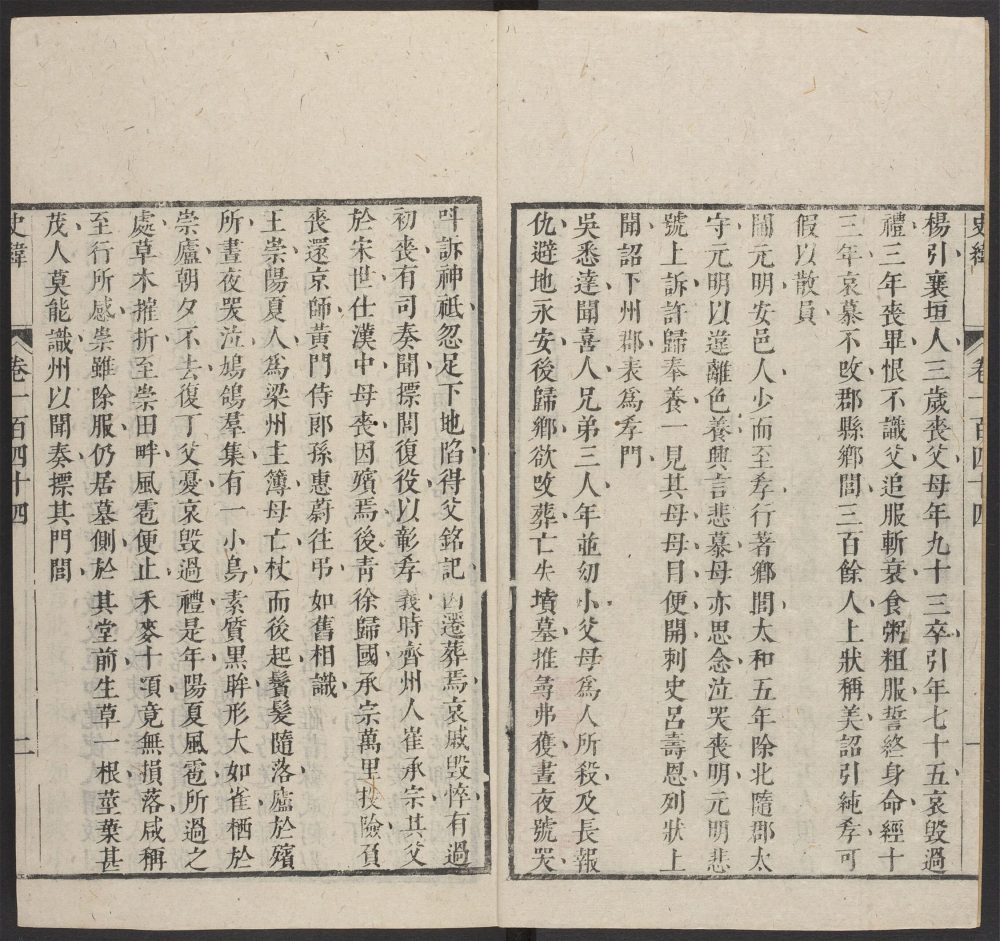 史緯
卷一百四十四
一
楊引襄垣人三歲喪父母年九十三卒引年七十五哀毀過
禮三年喪畢恨不識父追服斬衰食粥粗服誓終身命經十
三年哀慕不改郡縣鄉閭三百餘人上狀稱美詔引純孝可
假以散員
閻元明安邑人少而至孝行著鄉閭太和五年除北隨郡太
守元明以違離色養興言悲慕母亦思念泣哭喪明元明悲
號上訴許歸奉養一見其母母目便開刺史呂壽恩列狀上
聞詔下州郡表爲孝門
吳悉達聞喜人兄弟三人年並幼小父母爲人所殺及長報
仇避地永安後歸鄉欲改葬亡失墳墓推尋弗獲晝夜號哭
呌訴神祇忽足下地陷得父銘記因遷葬焉哀戚毀悴有過
初喪有司奏聞摽閭復役以彰孝義時齊州人崔承宗其父
於宋世仕漢中母喪因殯焉後靑徐歸國承宗萬里投險負
喪還京師黃門侍郎孫惠蔚往弔如舊相識
王崇陽夏人爲梁州主簿母亡杖而後起鬢髮隨落廬於殯
所晝夜哭泣鳩鴿羣集有一小鳥素質黑眸形大如雀栖於
崇廬朝夕不去復丁父憂哀毀過禮是年陽夏風雹所過之
處草木摧折至崇田畔風雹便止禾麥十頃竟無損落咸稱
至行所感崇雖除服仍居墓側於其堂前生草一根莖葉甚
茂人莫能識州以聞奏摽其門閭
史緯
卷一百四十四
二